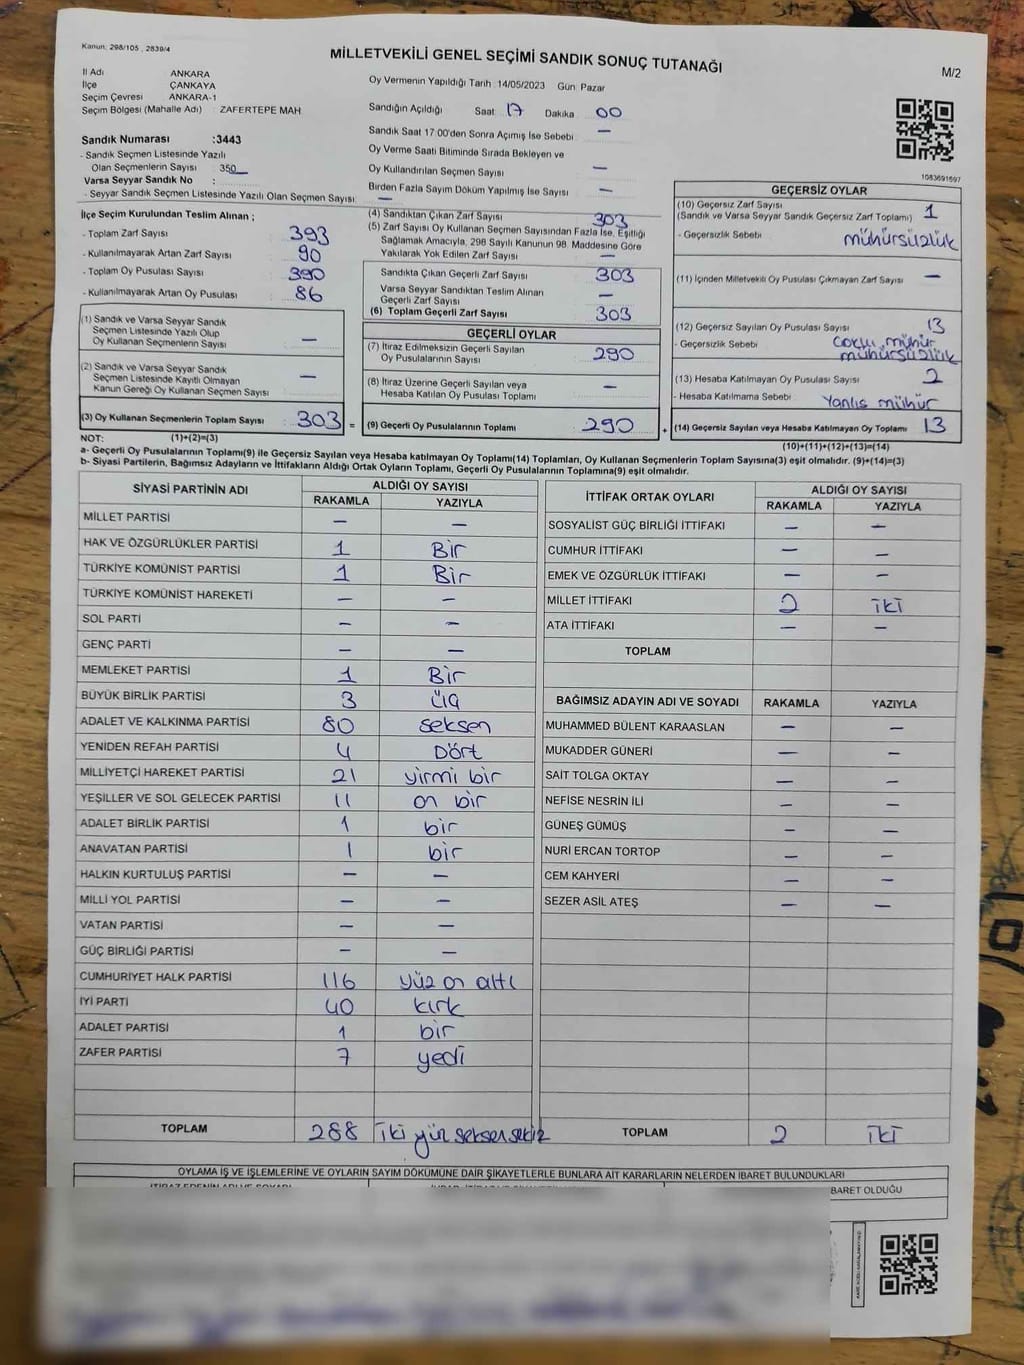 Kanun: 298/105 , 2839/4
MİLLETVEKİLİ GENEL SEÇİMİ SANDIK SONUÇ TUTANAĞI
M/2
İl Adı ANKARA
İlçe ÇANKAYA
Seçim Çevresi ANKARA-1
Seçim Bölgesi (Mahalle Adı) : ZAFERTEPE MAH
Oy Vermenin Yapıldığı Tarih 14/05/2023 Gün: Pazar
Sandığın Açıldığı Saat 17 Dakika 00
Sandık Saat 17:00'den Sonra Açımış İse Sebebi —
Oy Verme Saati Bitiminde Sırada Bekleyen ve
Oy Kullandırılan Seçmen Sayısı —
Birden Fazla Sayım Döküm Yapılmış İse Sayısı —
Sandık Numarası :3443
- Sandık Seçmen Listesinde Yazılı
Olan Seçmenlerin Sayısı 350
Varsa Seyyar Sandık No :
- Seyyar Sandık Seçmen Listesinde Yazılı Olan Seçmen Sayısı: —
1083691597
İlçe Seçim Kurulundan Teslim Alınan ;
- Toplam Zarf Sayısı 393
- Kullanılmayarak Artan Zarf Sayısı 90
- Toplam Oy Pusulası Sayısı 390
- Kullanılmayarak Artan Oy Pusulası 86
(1) Sandık ve Varsa Seyyar Sandık
Seçmen Listesinde Yazılı Olup
Oy Kullanan Seçmenlerin Sayısı —
(2) Sandık ve Varsa Seyyar Sandık
Seçmen Listesinde Kayıtlı Olmayan
Kanun Gereği Oy Kullanan Seçmen Sayısı —
(3) Oy Kullanan Seçmenlerin Toplam Sayısı 303 =
(4) Sandıktan Çıkan Zarf Sayısı 303
(5) Zarf Sayısı Oy Kullanan Seçmen Sayısından Fazla İse, Eşitliği
Sağlamak Amacıyla, 298 Sayılı Kanunun 98. Maddesine Göre
Yakılarak Yok Edilen Zarf Sayısı —
Sandıkta Çıkan Geçerli Zarf Sayısı 303
Varsa Seyyar Sandıktan Teslim Alınan
Geçerli Zarf Sayısı —
(6) Toplam Geçerli Zarf Sayısı 303
GEÇERLİ OYLAR
(7) İtiraz Edilmeksizin Geçerli Sayılan
Oy Pusulalarının Sayısı 290
(8) İtiraz Üzerine Geçerli Sayılan veya
Hesaba Katılan Oy Pusulası Toplamı —
(9) Geçerli Oy Pusulalarının Toplamı 290 +
GEÇERSİZ OYLAR
(10) Geçersiz Zarf Sayısı
(Sandık ve Varsa Seyyar Sandık Geçersiz Zarf Toplamı) 1
- Geçersizlik Sebebi mühürsüzlük
(11) İçinden Milletvekili Oy Pusulası Çıkmayan Zarf Sayısı —
(12) Geçersiz Sayılan Oy Pusulası Sayısı 13
- Geçersizlik Sebebi mühür
mühürsüzlük
(13) Hesaba Katılmayan Oy Pusulası Sayısı 2
- Hesaba Katılmama Sebebi Yanlıs mühür
(14) Geçersiz Sayılan veya Hesaba Katılmayan Oy Toplamı 13
NOT: (1)+(2)=(3)
(10)+(11)+(12)+(13)=(14)
a- Geçerli Oy Pusulalarının Toplamı(9) ile Geçersiz Sayılan veya Hesaba Katılmayan Oy Toplamı(14) Toplamları, Oy Kullanan Seçmenlerin Toplam Sayısına(3) eşit olmalıdır. (9)+(14)=(3)
b- Siyasi Partilerin, Bağımsız Adayların ve İttifakların Aldığı Ortak Oyların Toplamı, Geçerli Oy Pusulalarının Toplamına(9) eşit olmalıdır.
SİYASİ PARTİNİN ADI ALDIĞI OY SAYISI
RAKAMLA YAZIYLA
MİLLET PARTİSİ — —
HAK VE ÖZGÜRLÜKLER PARTİSİ 1 Bir
TÜRKİYE KOMÜNİST PARTİSİ 1 Bir
TÜRKİYE KOMÜNİST HAREKETİ — —
SOL PARTİ — —
GENÇ PARTİ — —
MEMLEKET PARTİSİ 1 Bir
BÜYÜK BİRLİK PARTİSİ 3 üç
ADALET VE KALKINMA PARTİSİ 80 seksen
YENİDEN REFAH PARTİSİ 4 Dört
MİLLİYETÇİ HAREKET PARTİSİ 21 yirmi bir
YEŞİLLER VE SOL GELECEK PARTİSİ 11 on bir
ADALET BİRLİK PARTİSİ 1 bir
ANAVATAN PARTİSİ 1 bir
HALKIN KURTULUŞ PARTİSİ — —
MİLLİ YOL PARTİSİ — —
VATAN PARTİSİ — —
GÜÇ BİRLİĞİ PARTİSİ — —
CUMHURİYET HALK PARTİSİ 116 yüz on altı
İYİ PARTİ 40 kırk
ADALET PARTİSİ 1 bir
ZAFER PARTİSİ 7 yedi
TOPLAM 288 iki yüz seksen sekiz
İTTİFAK ORTAK OYLARI ALDIĞI OY SAYISI
RAKAMLA YAZIYLA
SOSYALİST GÜÇ BİRLİĞİ İTTİFAKI — —
CUMHUR İTTİFAKI — —
EMEK VE ÖZGÜRLÜK İTTİFAKI — —
MİLLET İTTİFAKI 2 iki
ATA İTTİFAKI — —
TOPLAM
BAĞIMSIZ ADAYIN ADI VE SOYADI RAKAMLA YAZIYLA
MUHAMMED BÜLENT KARAASLAN — —
MUKADDER GÜNERİ — —
SAİT TOLGA OKTAY — —
NEFİSE NESRİN İLİ — —
GÜNEŞ GÜMÜŞ — —
NURİ ERCAN TORTOP — —
CEM KAHYERİ — —
SEZER ASİL ATEŞ — —
TOPLAM 2 iki
OYLAMA İŞ VE İŞLEMLERİNE VE OYLARIN SAYIM DÖKÜMÜNE DAİR ŞİKAYETLERLE BUNLARA AİT KARARLARIN NELERDEN İBARET BULUNDUKLARI
İBARET OLDUĞU